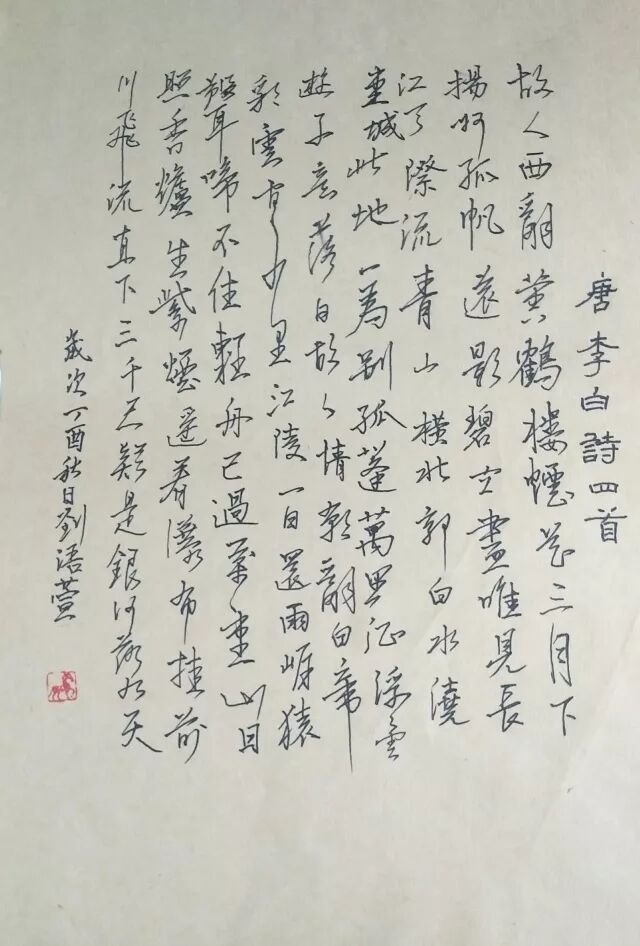 唐李白詩四首
故人西辭黄鶴樓煙花三月下
揚州孤帆遠影碧空盡唯見長
江天際流青山橫北郭白水澆
東城此地一為別孤蓬萬里征浮雲
遊子意落日故人情朝辭白帝
彩雲間千里江陵一日還兩岸猿
聲啼不住輕舟已過萬重山日
照香爐生紫煙遥看瀑布挂前
川飛流直下三千尺疑是銀河落九天
歲次丁酉秋日劉語萱